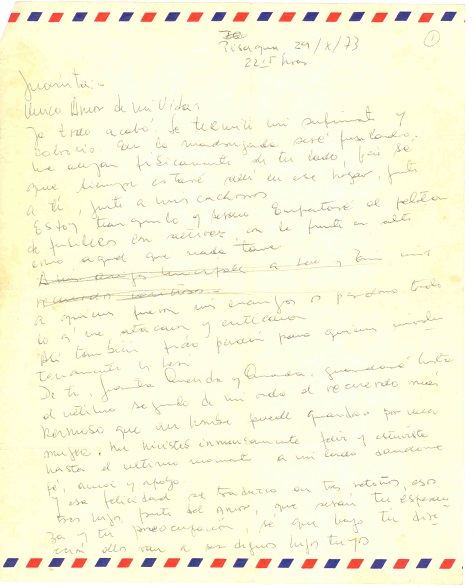 Pisagua 29/X/73
1
22.15 horas
Juanita:-
Unico Amor de mi Vida:
Ya todo acabó. Se terminó mi sufrimiento y
calvario. En la madrugada seré fusilado.
me alejan físicamente de tu lado, pero sé
que siempre estaré allí en ese hogar, junto
a ti, junto a mis cachorros
Estoy tranquilo y sereno. Enfrentaré al pelotón
de fusileros con altivez, con la frente en alto
como aquel que nada teme
a quienes fueron mis enemigos os perdono todo
lo q' me atacaron y criticaron
Allí también pido perdón para quienes involun
tariamente les herí
De ti, Juanita Querida y Amada, guardaré hasta
el último segundo de mi vida el recuerdo más
hermoso que un hombre puede guardar por una
mujer. Me hiciste inmensamente feliz y estuviste
hasta el último momento a mi lado dandome
fé, amor y apoyo.
Y esa felicidad se tradujo en tres retoños, esos
tres hijos, fruto del amor, que serán tu esperan
za y tu preocupación, se que bajo tu
ellos van a ser dignos hijos tuyos